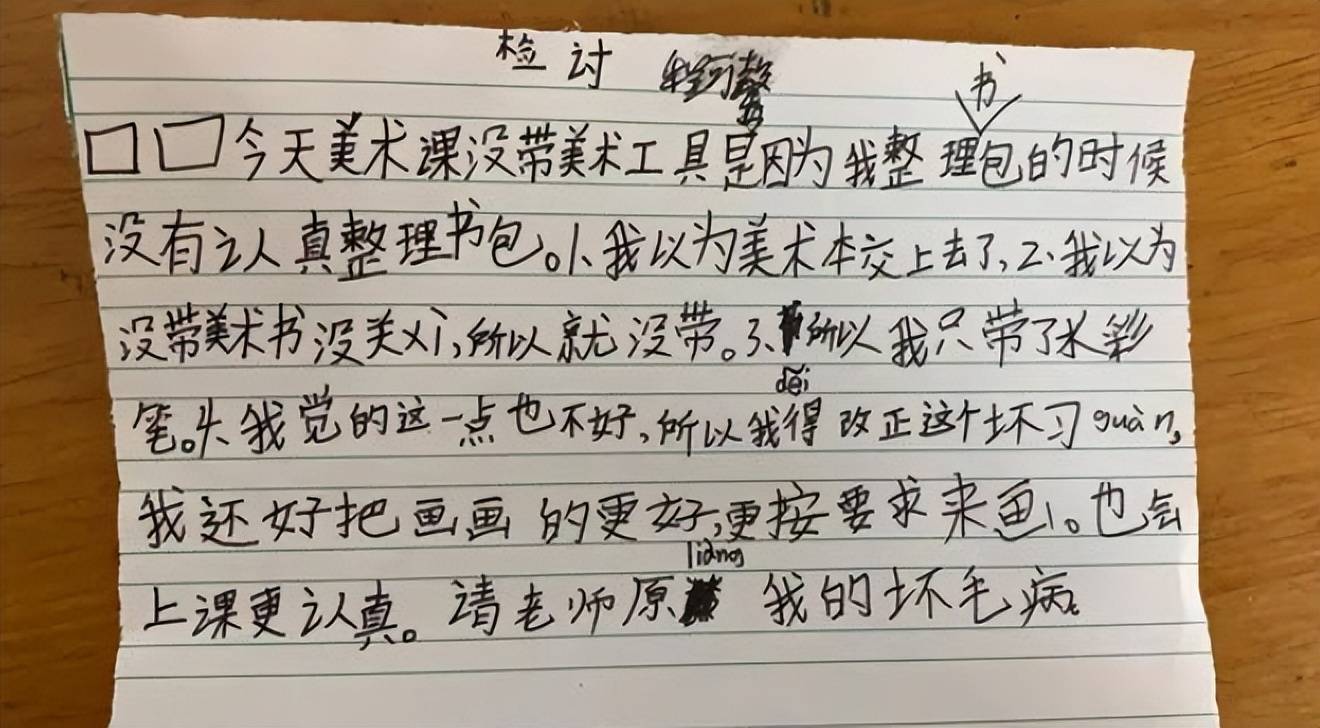 检讨
□□今天美术课没带美术工具是因为我整理书包的时候
没有认真整理书包。1、我以为美术本交上去了,2、我以为
没带美术书没关xi,所以就没带。3、所以我只带了水彩
笔。4、我觉的这一点也不好,所以我得(děi)改正这个坏习guàn,
我还好把画画的更好,更按要求来画。也会
上课更认真。请老师原liàng我的坏毛病